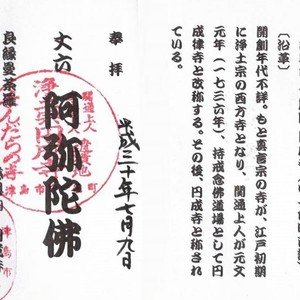 〔沿革〕
開創年代不詳。もと真言宗の寺が、江戸初期
に浄土宗の西方寺となり、関通上人が元文
元年（一七三六年）、持戒念佛道場として円
成律寺と改称する。その後、円成寺と称され
ている。
平成三十年七月九日
奉拝
丈六
阿弥陀佛
関通上人
良縁曼荼羅
んだらの寺
津島市